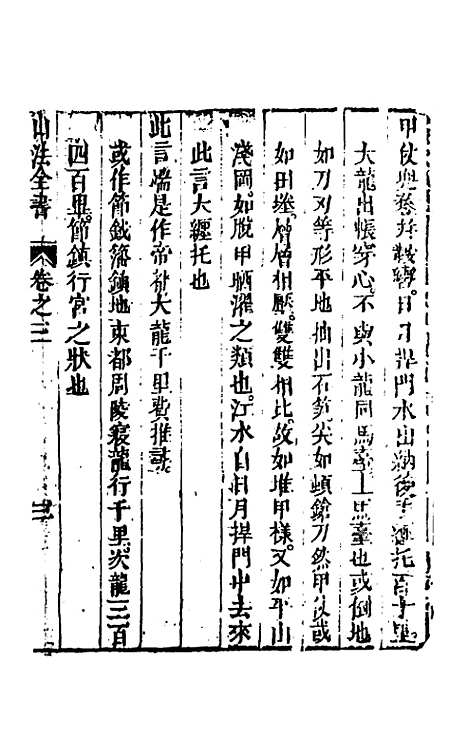 甲仗與卷並鞍轡日月捍門水出納後手遮托百十里
大龍出帳穿心不與小龍同馬臺上馬臺也或倒地
如刀刃等形平地抽出石筍尖如頓鎗刀然甲仗或
如田塍層層相壓雙雙相比故如堆甲樣又如平山
淺岡如脫甲晒濯之類也江水自日月捍門中去來
此言大纏托也
此言端是作帝都大龍千里費推尋
或作節鉞藩鎮地東都周陵寢龍行千里次龍三百
四百里節鎮行宮之狀也
山法全書
卷之三
三